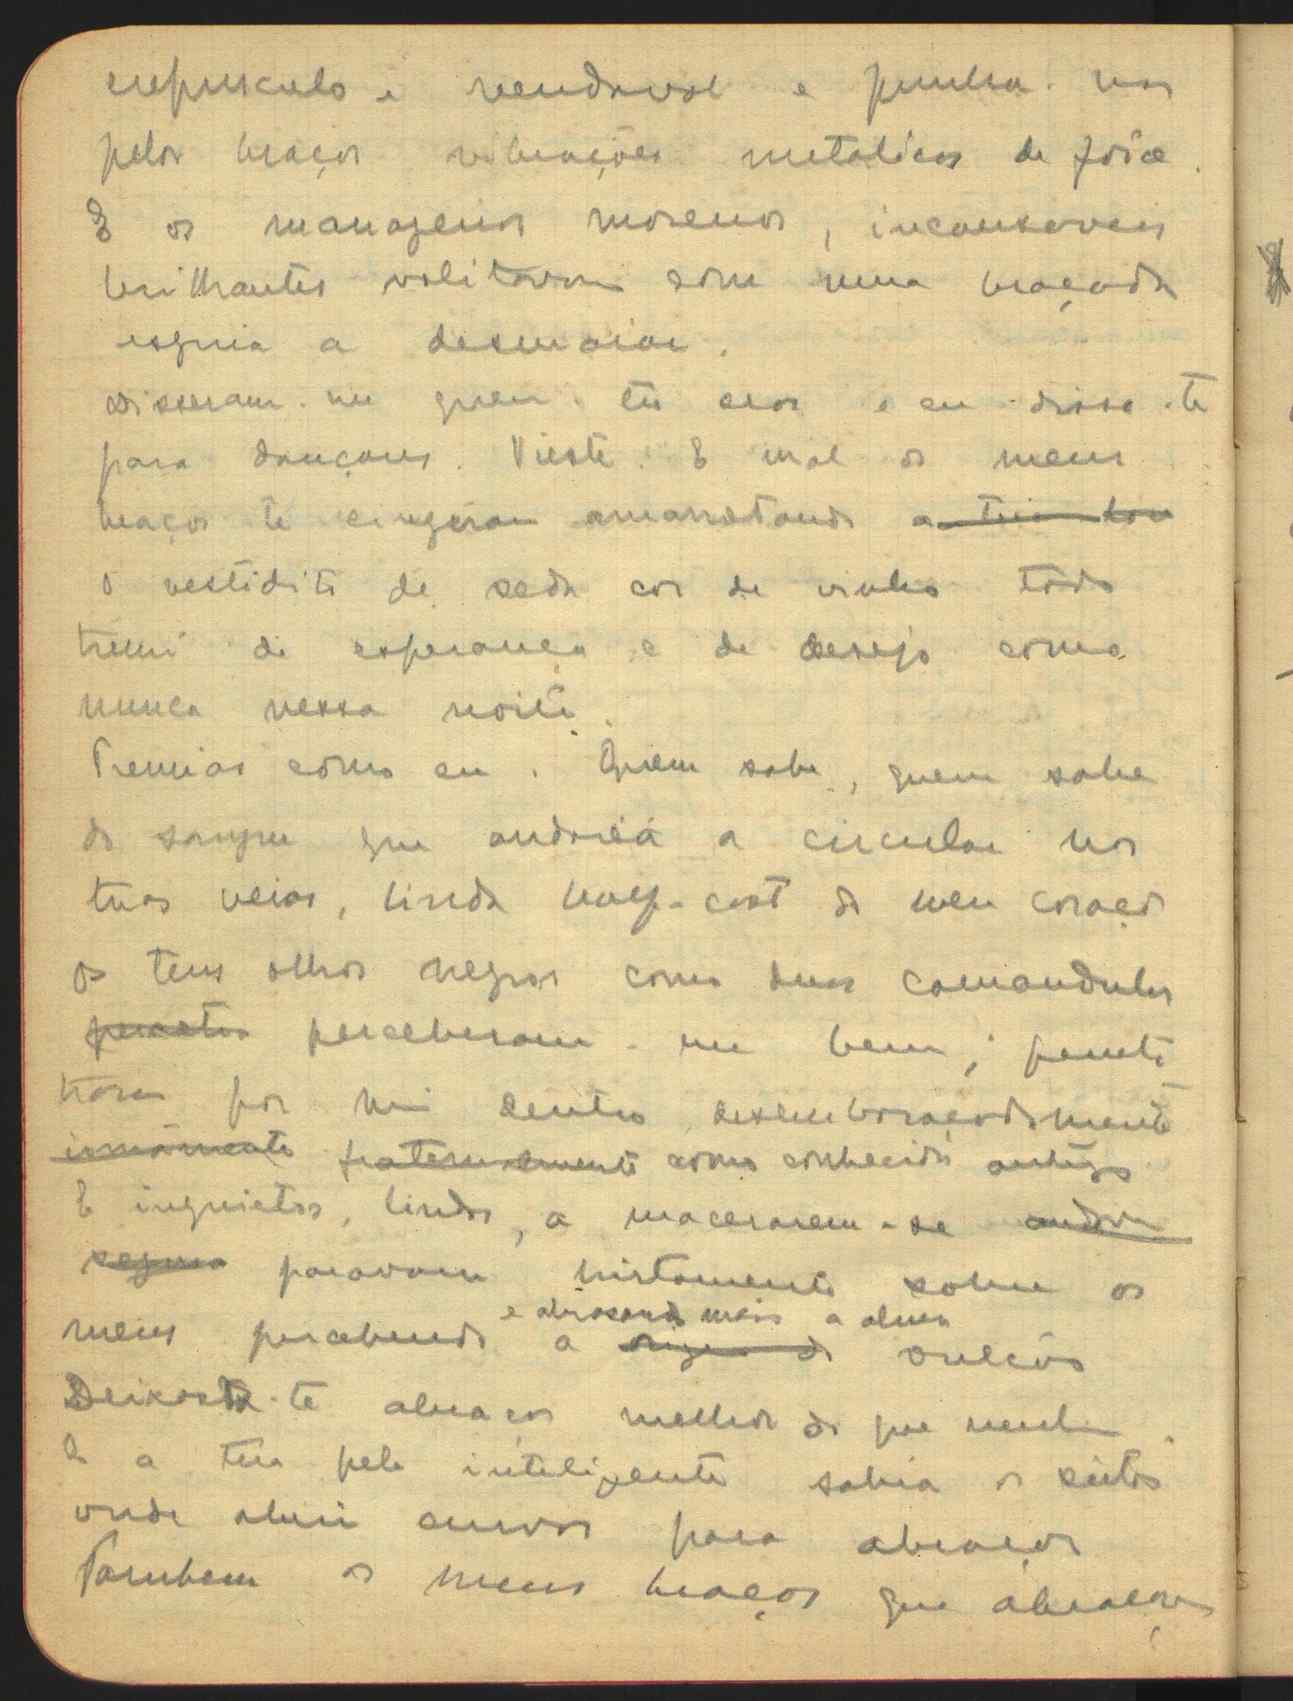 crepusculo e vendaval e punha-nos
pelos braços vibrações metalicas de foice.
E os morenos, incansaveis
brilhantes volitavam com uma braçada
esguia a desmaiar.
Disseram-me quem tu eras e eu disse-te
para dançarmos. Vieste. E mal os meus
braços te cingiram amarrotando a tua
o vestidito de seda cor de vinho todo
tremi de esperança e de desejo como
nunca nessa noite.
Tremias como eu. Quem sabe, quem sabe
do sangue que andará a circular nas
tuas veias, linda half-cast do meu coração
Os teus olhos negros como duas camandulas
perceberam-me bem; penet
traram por mim dentro desembaraçadamente
irmãmente fraternalmente como conhecido antigo
E inquietos, lindos, a macerarem-se andava
paravam sobre os
e abrasando mais a alma
meus percebendo a origem do vulcão
Deixaste-te abraçar melhor do que nenhuma.
E a tua pele inteligente sabia os sitios
onde abrir curvas para abraços
Tambem os meus braços que abraçam